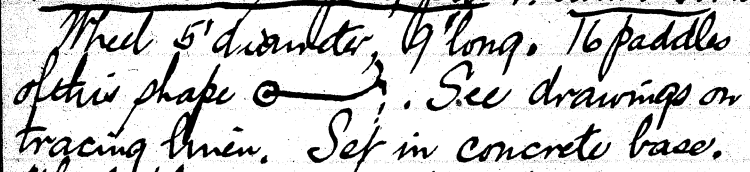 Wheel 5' diameter, 9' long. 16 paddles
of this shape . See drawings on
tracing linen. Set in concrete base.